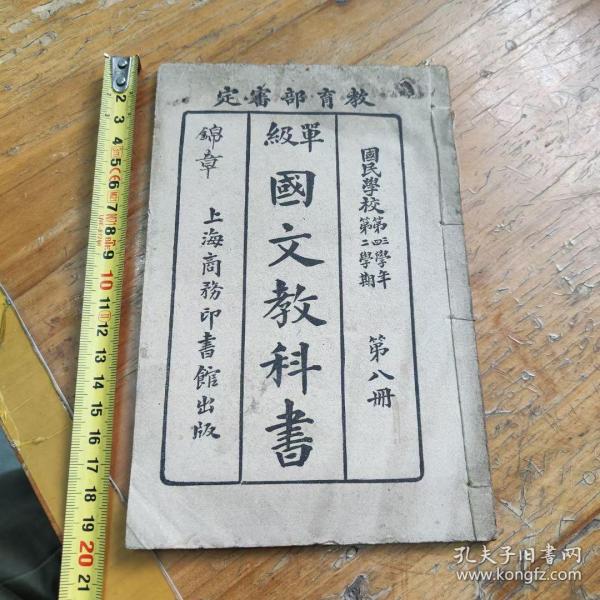 教育部審定
國民學校第三四學年第二學期 第八冊
單級
國文教科書
錦章
上海商務印書館出版
2 3 4 5 6 7 8 9 10 11 12 13 14 15 16 17 18 19 20 21
孔夫子旧书网
www.kongfz.com